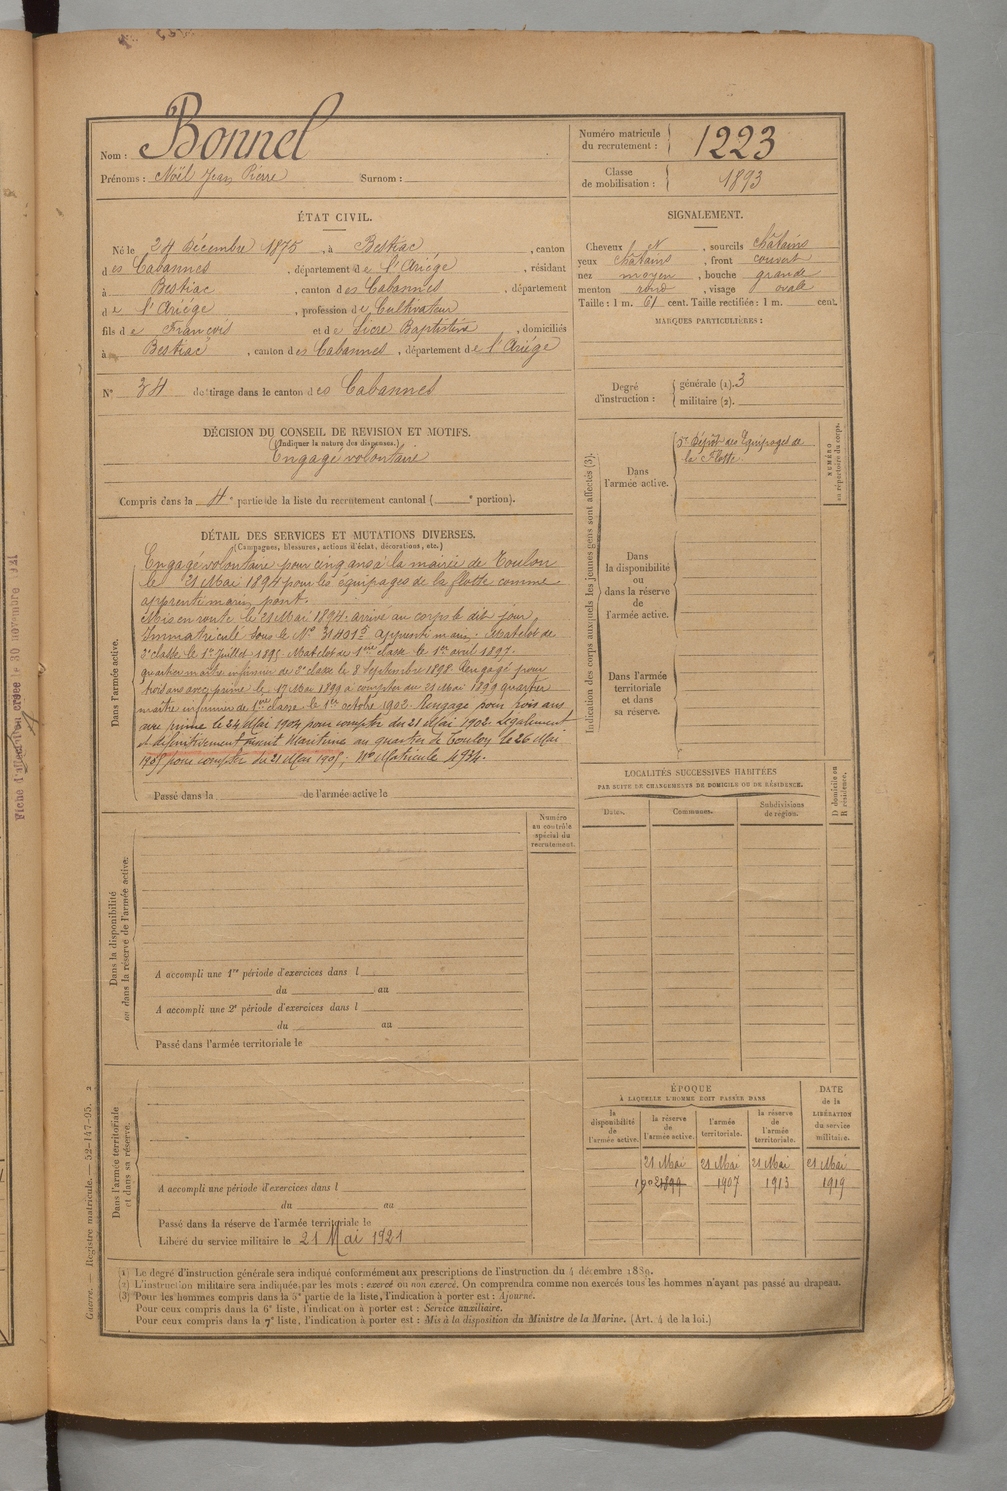 Nom : Bonnel
Prénoms : Noël Jean Pierre Surnom :
Numéro matricule
du recrutement : 1223
Classe
de mobilisation : 1893
ÉTAT CIVIL.
Né le 24 Décembre 1875, à Bestiac, canton
des Cabannes, département de l'Ariége, résidant
à Bestiac, canton des Cabannes, département
de l'Ariége, profession de Cultivateur
fils de François et de Sicre Baptistine, domiciliés
à Bestiac, canton des Cabannes, département de l'Ariége
N° 34 de tirage dans le canton des Cabannes
DÉCISION DU CONSEIL DE REVISION ET MOTIFS.
(Indiquer la nature des dispenses.)
Engagé volontaire
Compris dans la 4e partie de la liste du recrutement cantonal ( e portion).
SIGNALEMENT.
Cheveux N, sourcils châtains
yeux châtains, front couvert
nez moyen, bouche grande
menton rond, visage ovale
Taille : 1 m. 61 cent. Taille rectifiée : 1 m. cent.
MARQUES PARTICULIÈRES :
Degré
d'instruction :
générale (1). 3
militaire (2).
DÉTAIL DES SERVICES ET MUTATIONS DIVERSES.
(Campagnes, blessures, actions d'éclat, décorations, etc.)
Dans l'armée active.
Engagé volontaire pour cinq ans à la mairie de Toulon
le 21 Mai 1894 pour les équipages de la flotte comme
apprenti marin pont.
Mis en route le 21 Mai 1894. arrivé au corps le dit jour
Immatriculé sous le N° apprenti marin. Matelot de
3e classe le 1er Juillet 1895 Matelot de 1ere classe le 1er avril 1897.
quartier maître infirmier de 2e classe le 8 Septembre 1898. Rengagé pour
trois ans avec prime le 17 Mai 1899 à compter du 21 Mai 1899 quartier
maître infirmier de 1ere classe le 1er octobre 1902. Rengagé pour trois ans
avec prime le 24 Mai pour compter du 21 Mai 1902. Légalement
et définitivement Inscrit Maritime au quartier de Toulon le 26 Mai
1905 pour compter du 21 Mai 1905; N° Matricule 4734.
Passé dans la de l'armée active le
Indication des corps auxquels les jeunes gens sont affectés (3).
NUMÉRO
au répertoire du corps.
Dans
l'armée active.
5e Dépôt des Equipages de
la Flotte
Dans
la disponibilité
ou
dans la réserve
de
l'armée active.
Dans l'armée
territoriale
et dans
sa réserve.
LOCALITÉS SUCCESSIVES HABITÉES
PAR SUITE DE CHANGEMENTS DE DOMICILE OU DE RÉSIDENCE.
D domicile ou
R résidence.
Dates.
Communes.
Subdivisions
de région.
Numéro
au contrôle
spécial du
recrutement.
Dans la disponibilité
ou dans la réserve de l'armée active.
A accompli une 1re période d'exercices dans l
du au
A accompli une 2e période d'exercices dans l
du au
Passé dans l'armée territoriale le
Dans l'armée territoriale
et dans sa réserve.
A accompli une période d'exercices dans l
du au
Passé dans la réserve de l'armée territoriale le
Libéré du service militaire le 21 Mai 1921
ÉPOQUE
À LAQUELLE L'HOMME DOIT PASSER DANS
DATE
de la
LIBÉRATION
du service
militaire.
la
disponibilité
de
l'armée active.
la réserve
de
l'armée active.
l'armée
territoriale.
la réserve
de
l'armée
territoriale.
21 Mai 21 Mai 21 Mai 21 Mai
1902 1899 1907 1913 1919
(1) Le degré d'instruction générale sera indiqué conformément aux prescriptions de l'instruction du 4 décembre 1889.
(2) L'instruction militaire sera indiquée par les mots : exercé ou non exercé. On comprendra comme non exercés tous les hommes n'ayant pas passé au drapeau.
(3) Pour les hommes compris dans la 5e partie de la liste, l'indication à porter est : Ajourné.
Pour ceux compris dans la 6e liste, l'indication à porter est : Service auxiliaire.
Pour ceux compris dans la 7e liste, l'indication à porter est : Mis à la disposition du Ministre de la Marine. (Art. 4 de la loi.)
Guerre. — Registre matricule. — 52-147-95. 2